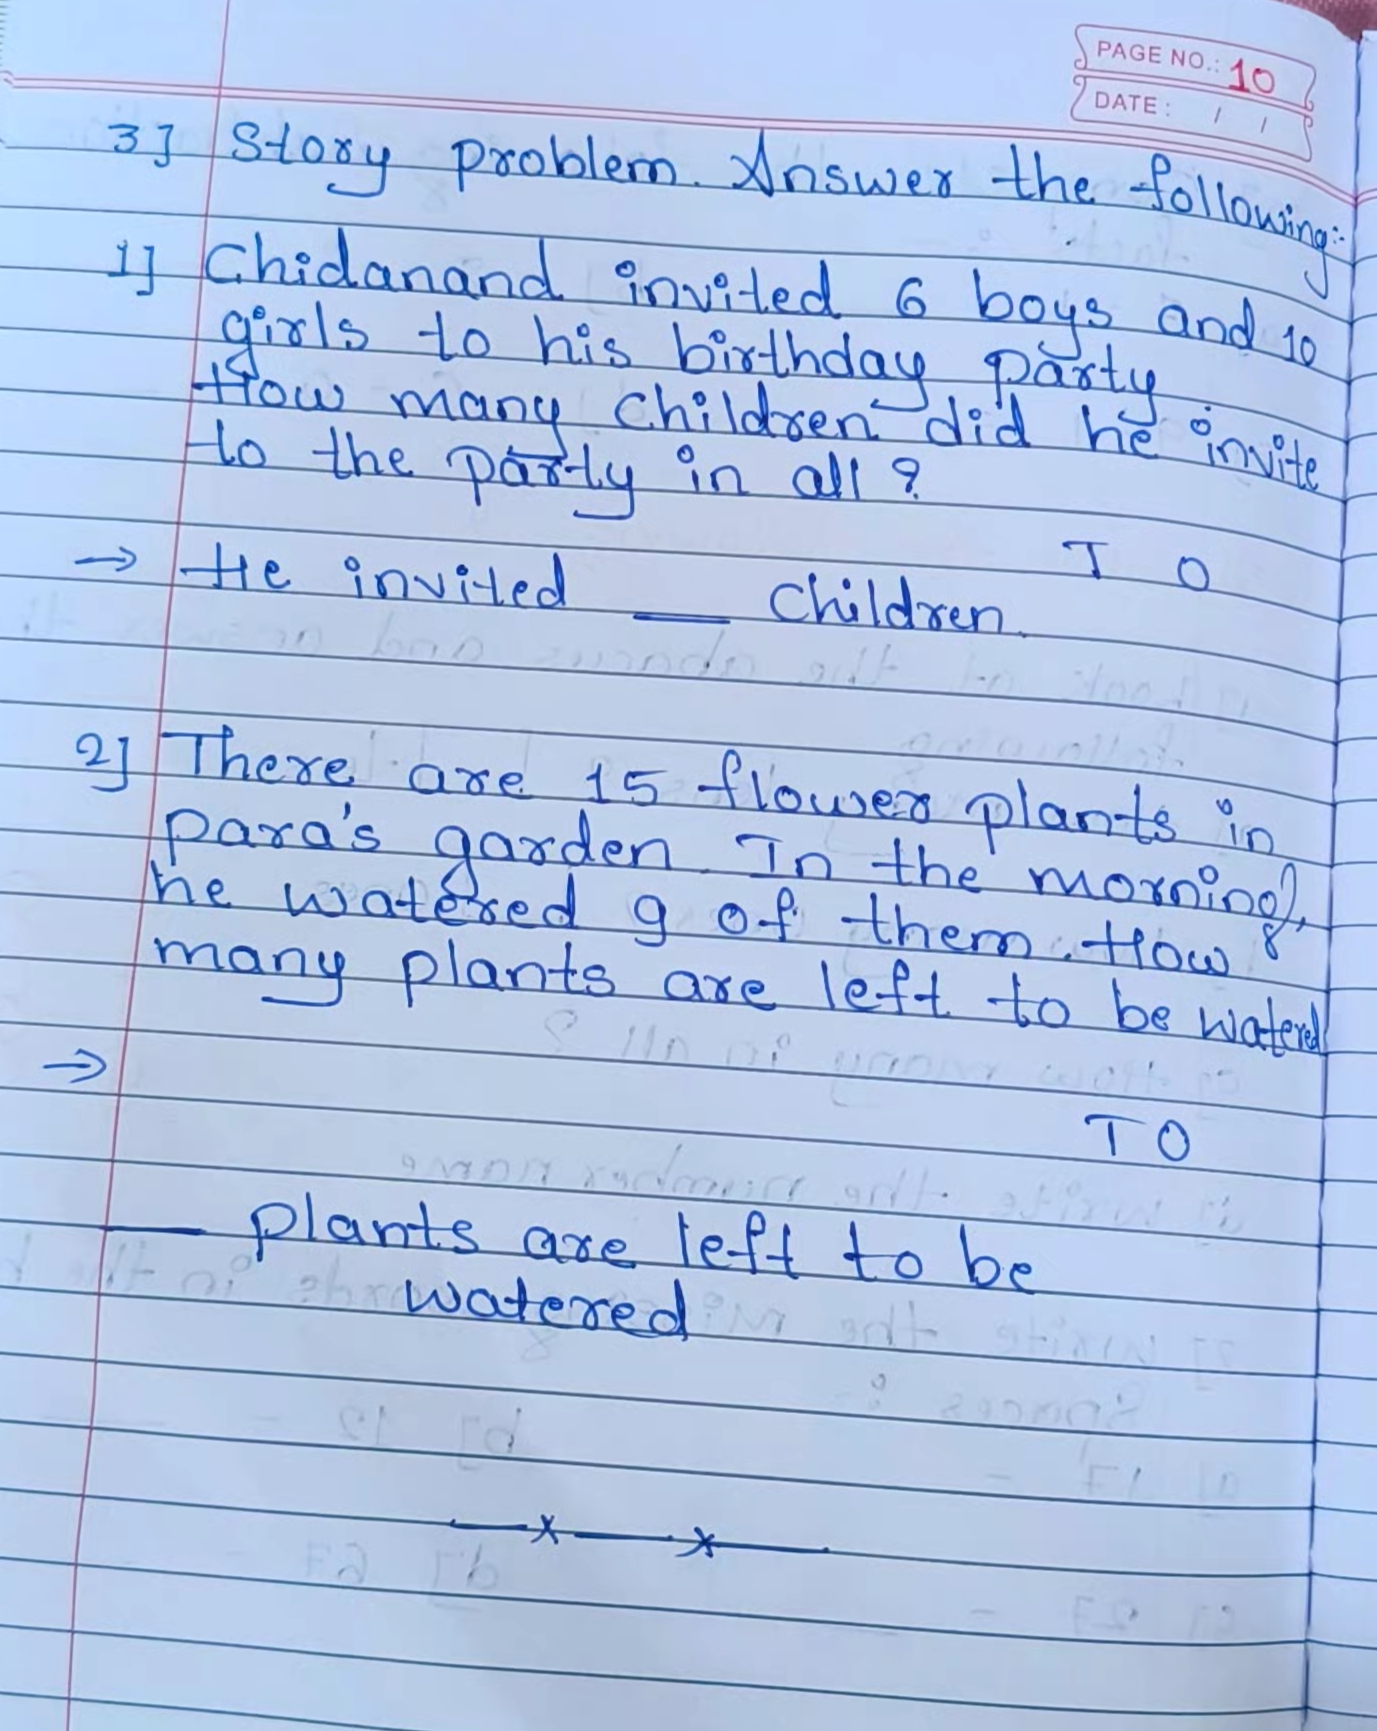 PAGE NO.: 10
DATE: / /
3] Story problem. Answer the following:-
1] Chidanand invited 6 boys and 10
girls to his birthday party
How many children did he invite
to the party in all ?
T O
→ He invited __ children.
2] There are 15 flower plants in
para's garden. In the morning,
he watered 9 of them. How
many plants are left to be watered
→
T O
__ plants are left to be
watered